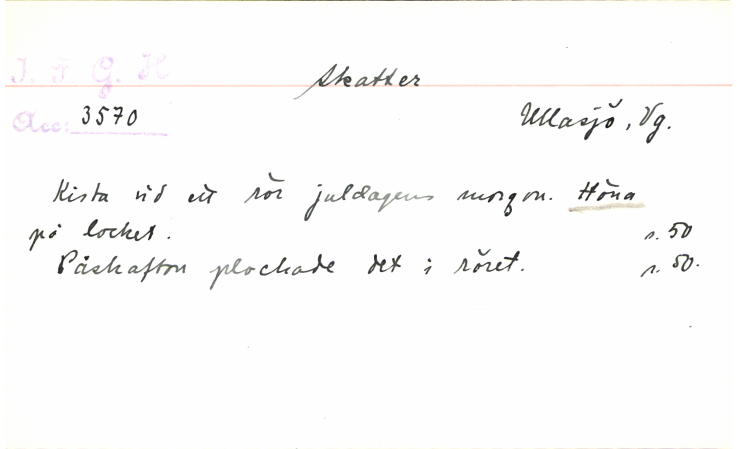 I. F. G. H
Skatter
Acc: 3570
Ullasjö, Vg.
Kista vid ett rör juldagens morgon. Höna
på locket.
s. 50
Påskafton plockade det i röret.
s. 50.